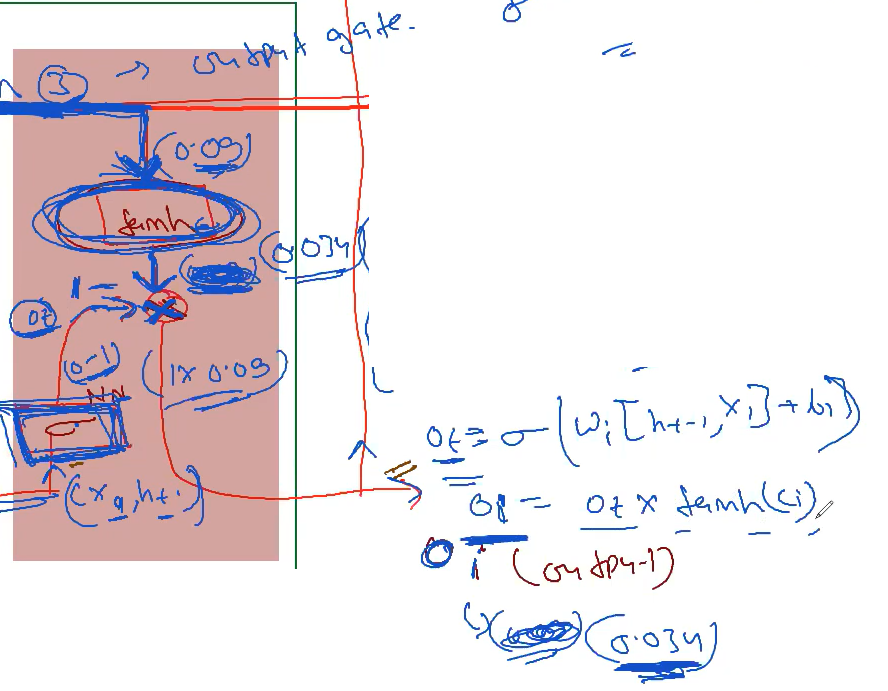 ③ → output gate.
(0.09)
tanh
(0.034)
1
ot
×
(0-1)
(1 x 0.09)
NN
σ
(x , ht-1)
ot = σ (wi [ht-1, xi] + bi)
= ot x tanh(ci)
(output-1)
(0.034)